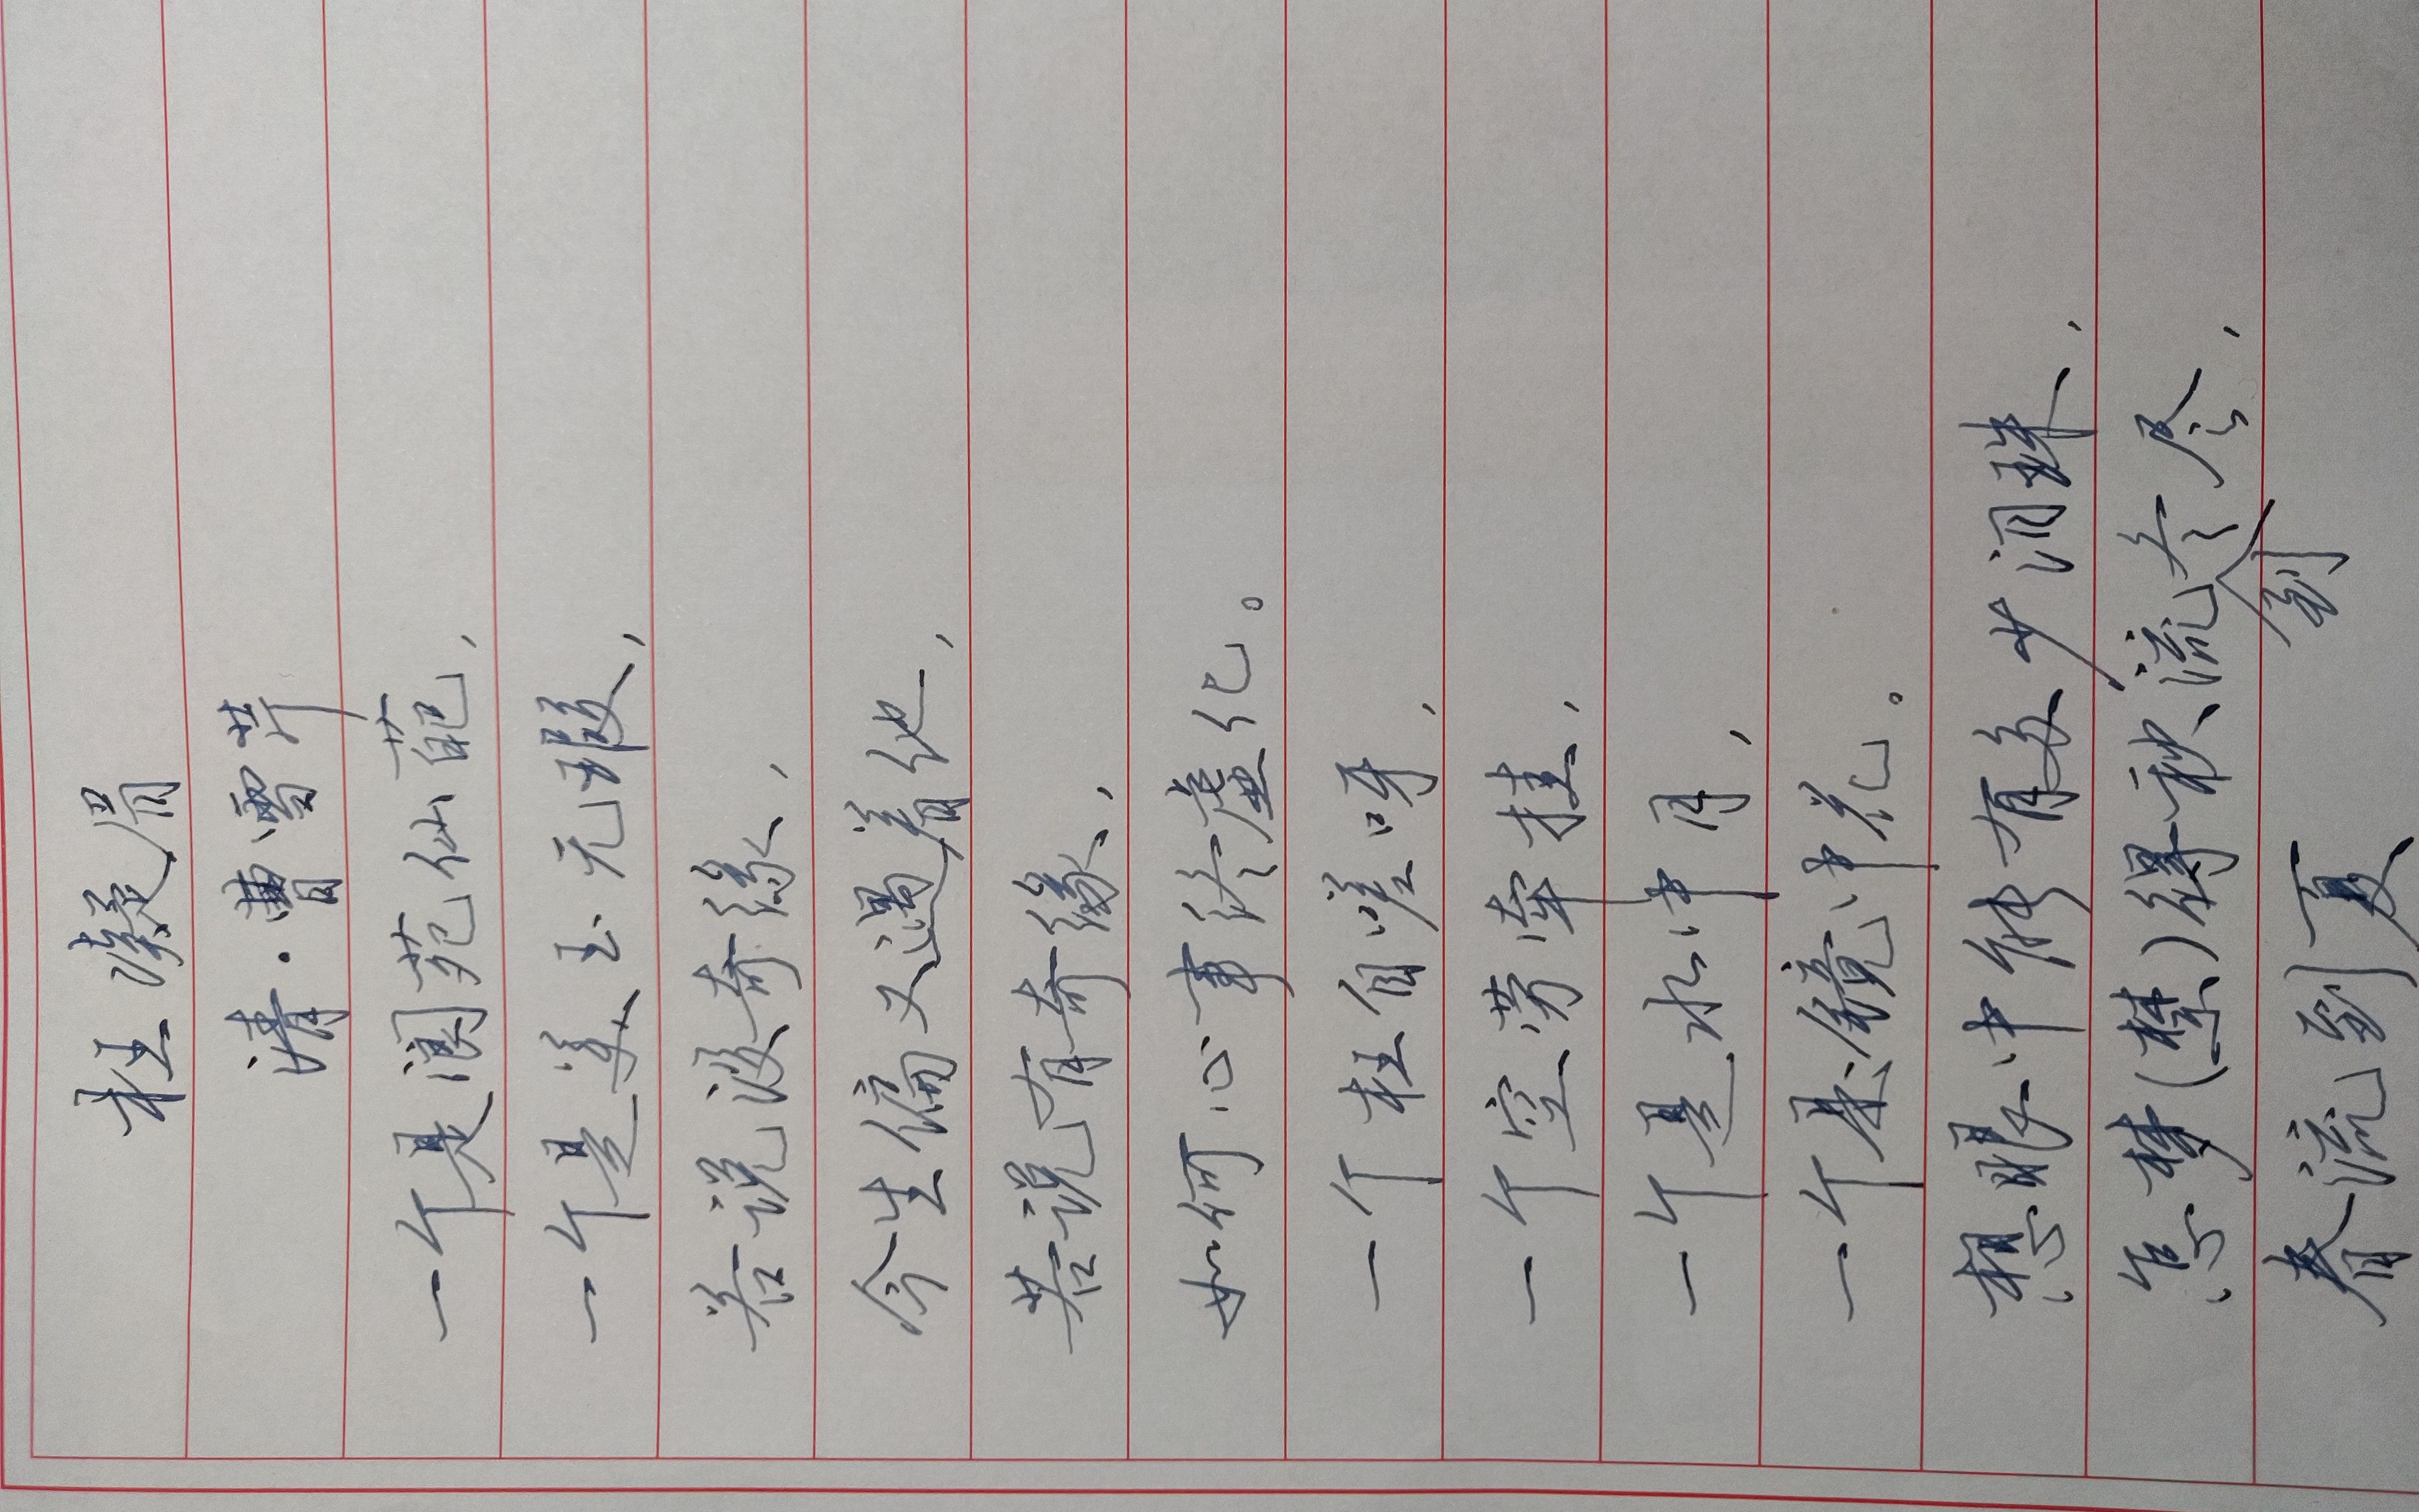 枉凝眉
清·曹雪芹
一个是阆苑仙葩，
一个是美玉无瑕，
若说没奇缘，
今生偏又遇着他，
若说有奇缘，
如何心事终虚化。
一个枉自嗟呀，
一个空劳牵挂，
一个是水中月，
一个是镜中花。
想眼中能有多少泪珠，
怎梦(禁)得秋流到冬尽，
春流到夏